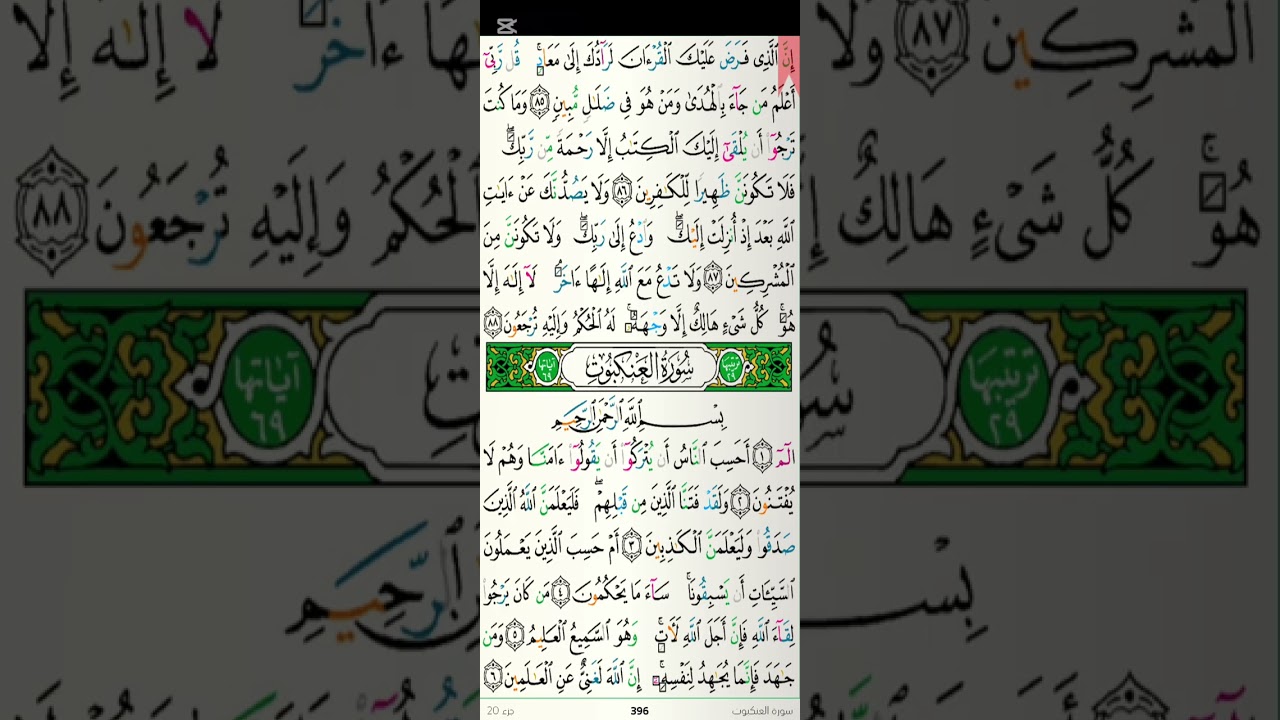 إِنَّ ٱلَّذِى فَرَضَ عَلَيْكَ ٱلْقُرْءَانَ لَرَآدُّكَ إِلَىٰ مَعَادٍۚ قُل رَّبِّىٓ
أَعْلَمُ مَن جَآءَ بِٱلْهُدَىٰ وَمَنْ هُوَ فِى ضَلَـٰلٍ مُّبِينٍ ٨٥ وَمَا كُنتَ
تَرْجُوٓا۟ أَن يُلْقَىٰٓ إِلَيْكَ ٱلْكِتَـٰبُ إِلَّا رَحْمَةً مِّن رَّبِّكَۖ
فَلَا تَكُونَنَّ ظَهِيرًا لِّلْكَـٰفِرِينَ ٨٦ وَلَا يَصُدُّنَّكَ عَنْ ءَايَـٰتِ
ٱللَّهِ بَعْدَ إِذْ أُنزِلَتْ إِلَيْكَۖ وَٱدْعُ إِلَىٰ رَبِّكَۖ وَلَا تَكُونَنَّ مِنَ
ٱلْمُشْرِكِينَ ٨٧ وَلَا تَدْعُ مَعَ ٱللَّهِ إِلَـٰهًا ءَاخَرَۘ لَآ إِلَـٰهَ إِلَّا
هُوَۚ كُلُّ شَىْءٍ هَالِكٌ إِلَّا وَجْهَهُۥۚ لَهُ ٱلْحُكْمُ وَإِلَيْهِ تُرْجَعُونَ ٨٨
ترتيبها ٢٩ سُورَةُ الْعَنْكَبُوتِ آياتها ٦٩
بِسْمِ ٱللَّهِ ٱلرَّحْمَـٰنِ ٱلرَّحِيمِ
الٓمٓ ١ أَحَسِبَ ٱلنَّاسُ أَن يُتْرَكُوٓا۟ أَن يَقُولُوٓا۟ ءَامَنَّا وَهُمْ لَا
يُفْتَنُونَ ٢ وَلَقَدْ فَتَنَّا ٱلَّذِينَ مِن قَبْلِهِمْۖ فَلَيَعْلَمَنَّ ٱللَّهُ ٱلَّذِينَ
صَدَقُوا۟ وَلَيَعْلَمَنَّ ٱلْكَـٰذِبِينَ ٣ أَمْ حَسِبَ ٱلَّذِينَ يَعْمَلُونَ
ٱلسَّيِّـَٔاتِ أَن يَسْبِقُونَاۚ سَآءَ مَا يَحْكُمُونَ ٤ مَن كَانَ يَرْجُوا۟
لِقَآءَ ٱللَّهِ فَإِنَّ أَجَلَ ٱللَّهِ لَـَٔاتٍۚ وَهُوَ ٱلسَّمِيعُ ٱلْعَلِيمُ ٥ وَمَن
جَـٰهَدَ فَإِنَّمَا يُجَـٰهِدُ لِنَفْسِهِۦٓۚ إِنَّ ٱللَّهَ لَغَنِىٌّ عَنِ ٱلْعَـٰلَمِينَ ٦
سورة العنكبوت 396 جزء 20